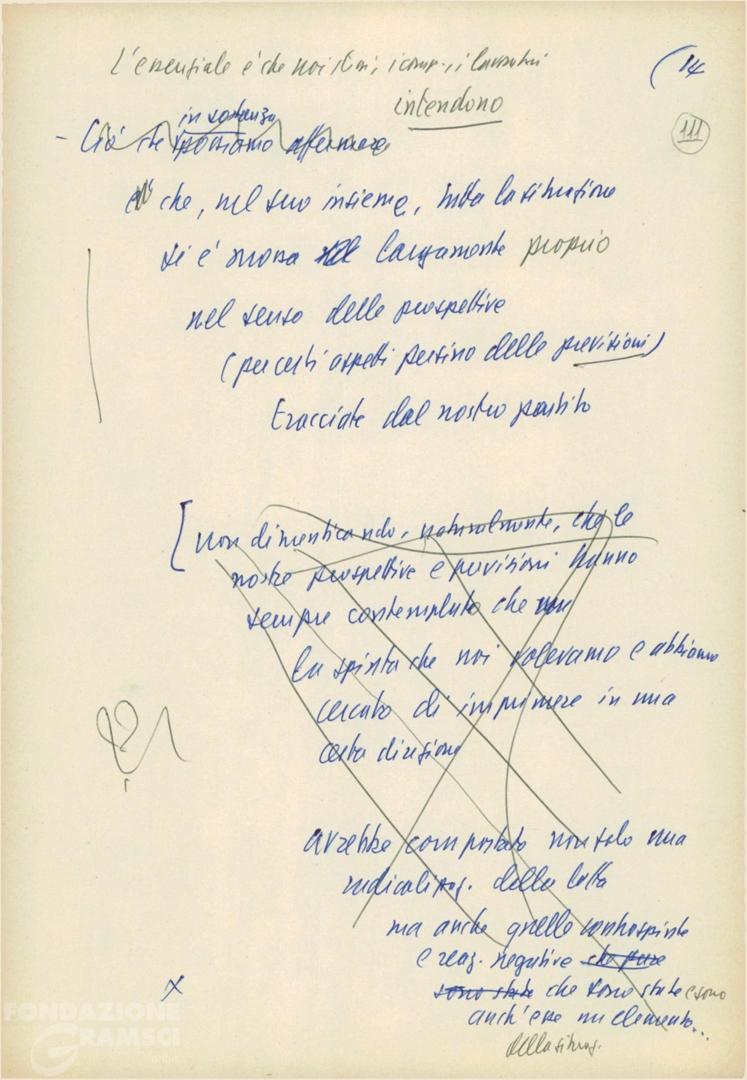 L'essenziale è che noi stessi, i comp., i lavoratori
(14
intendono
111
in sostanza
- Ciò che possiamo affermare
è che, nel suo insieme, tutta la situazione
si è mossa largamente proprio
nel senso delle prospettive
(per certi aspetti persino delle previsioni)
tracciate dal nostro partito
[non dimenticando, naturalmente, che le
nostre prospettive e previsioni hanno
sempre contemplato che
la spinta che noi volevamo e abbiamo
cercato di imprimere in una
certa direzione
avrebbe comportato non solo una
radicalizzaz. della lotta
ma anche quelle controspinte
e reaz. negative che pure
sono state che sono state e sono
anch'esse un elemento...
della situaz.
x
FONDAZIONE
GRAMSCI